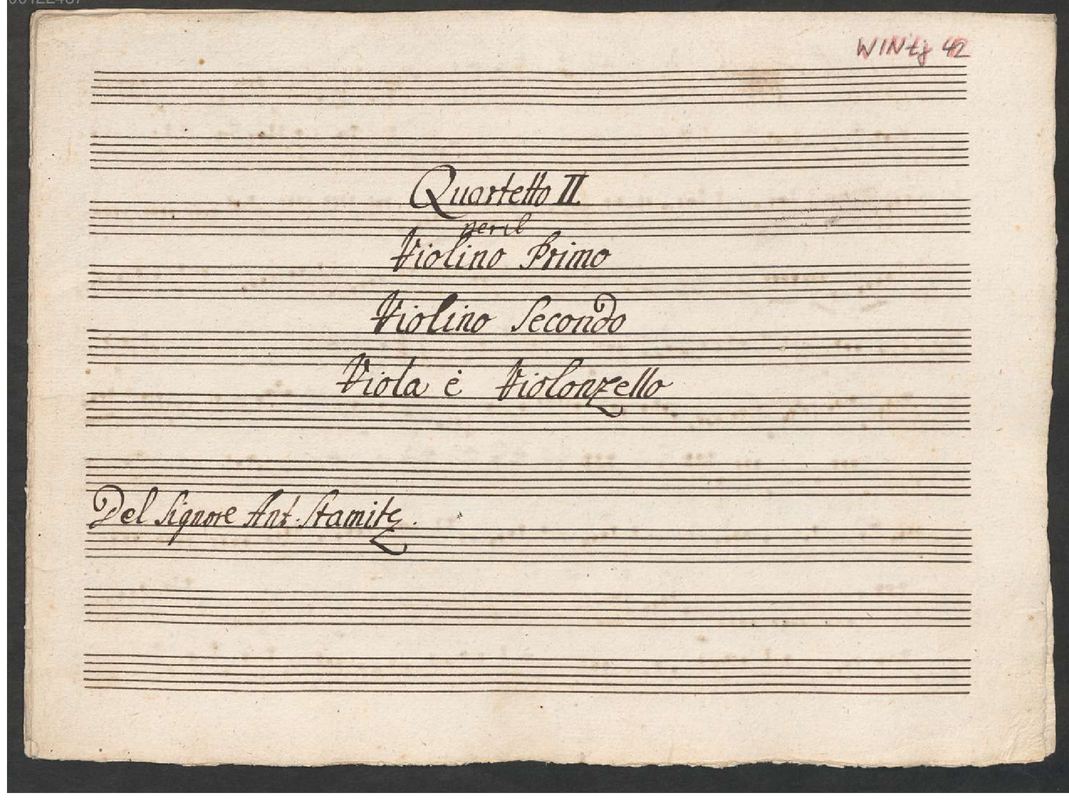 WINtz 42
Quartetto II
per il
Violino Primo
Violino Secondo
Viola è Violonzello
Del Signore Ant. Stamitz.